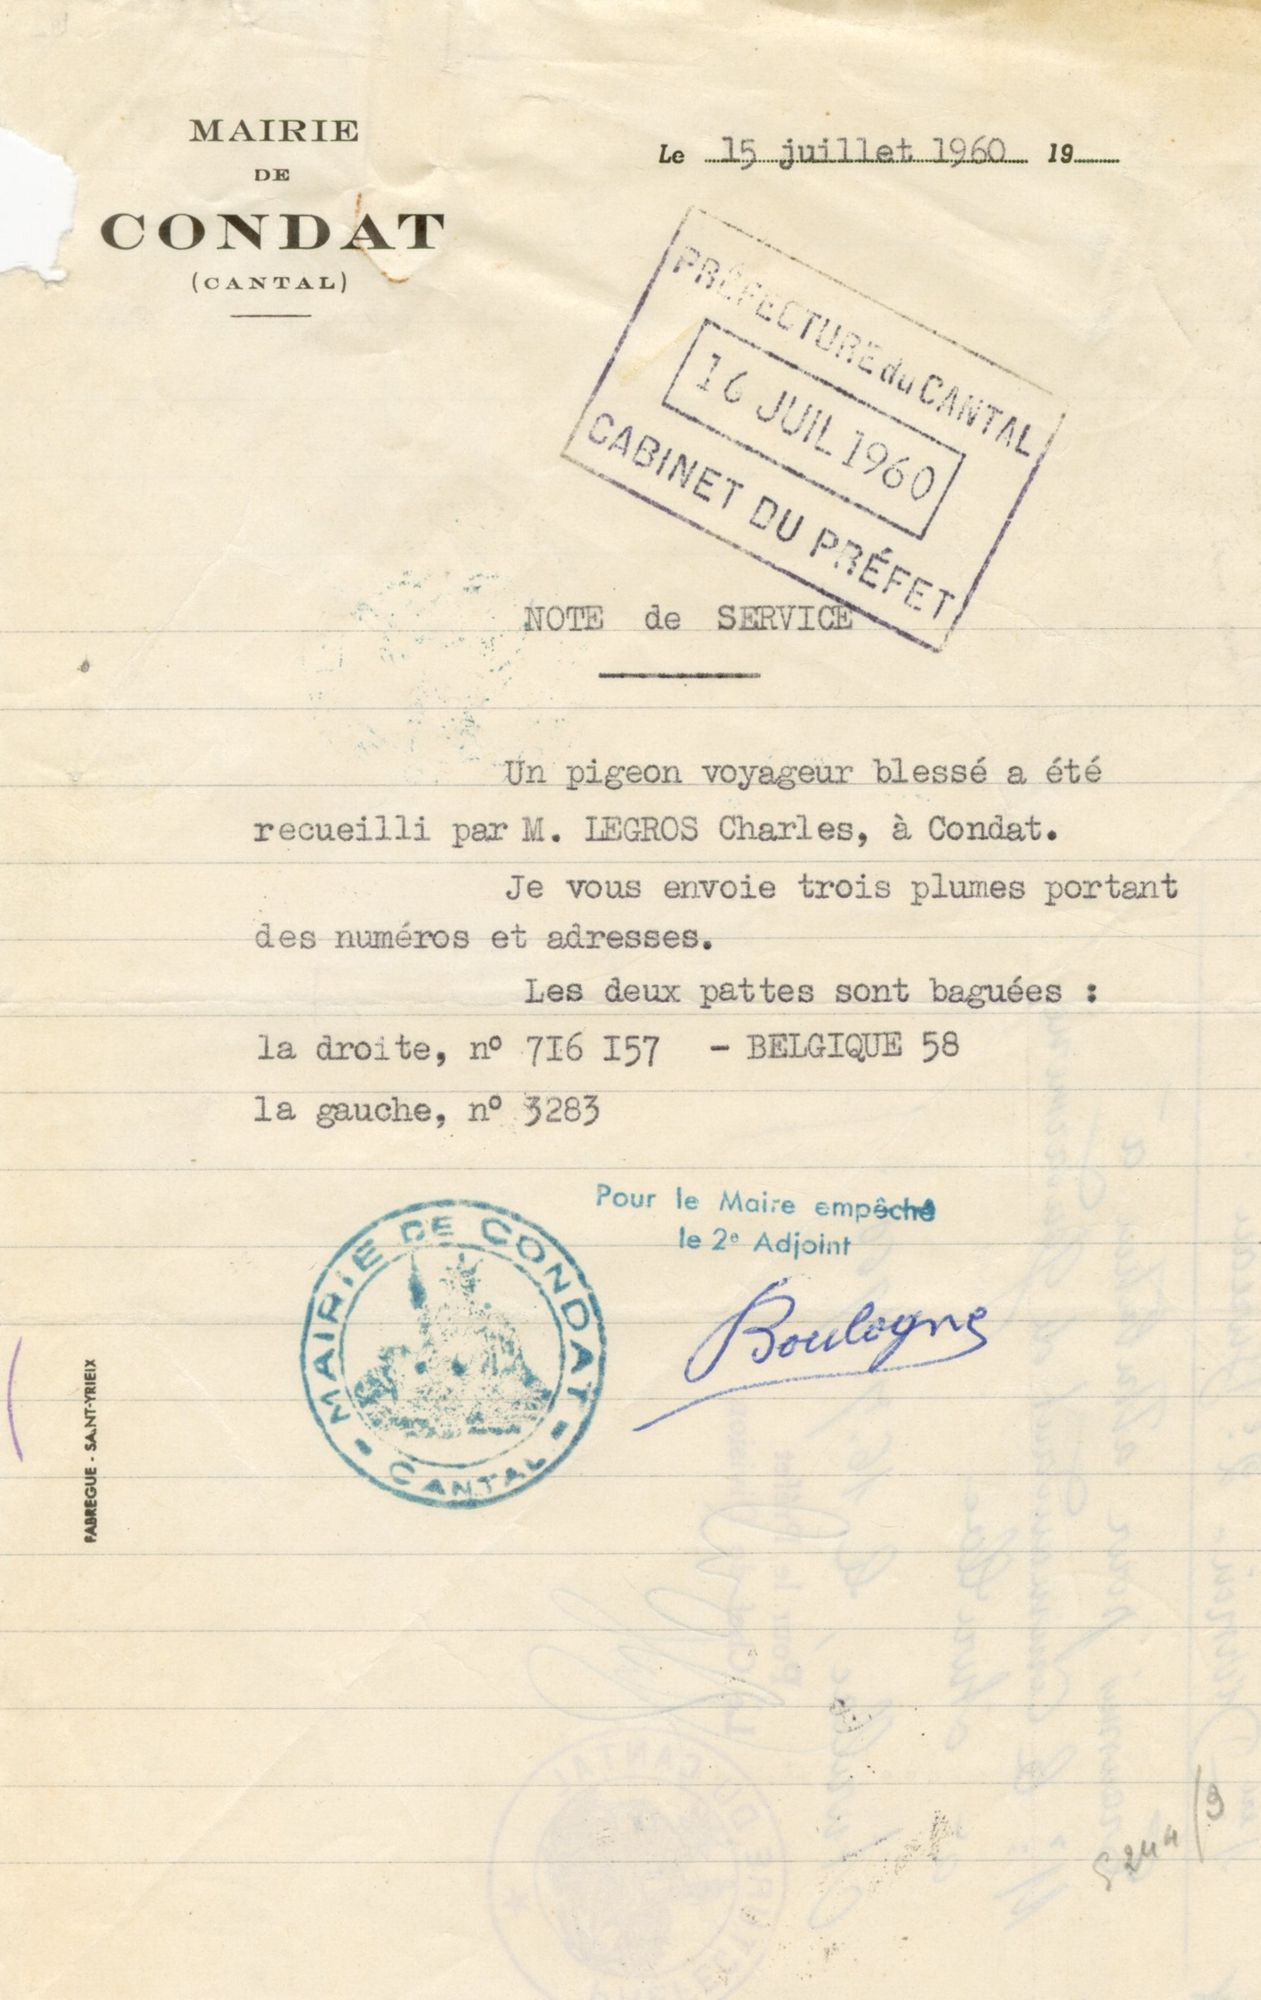 MAIRIE
DE
CONDAT
(CANTAL)
Le 15 juillet 1960 19
PRÉFECTURE du CANTAL
16 JUIL 1960
CABINET DU PRÉFET
NOTE de SERVICE
Un pigeon voyageur blessé a été
recueilli par M. LEGROS Charles, à Condat.
Je vous envoie trois plumes portant
des numéros et adresses.
Les deux pattes sont baguées :
la droite, nº 7I6 I57 - BELGIQUE 58
la gauche, nº 3283
Pour le Maire empêché
le 2e Adjoint
Boulogne
MAIRIE DE CONDAT
- CANTAL -
FABREGUE - SAINT-YRIEIX